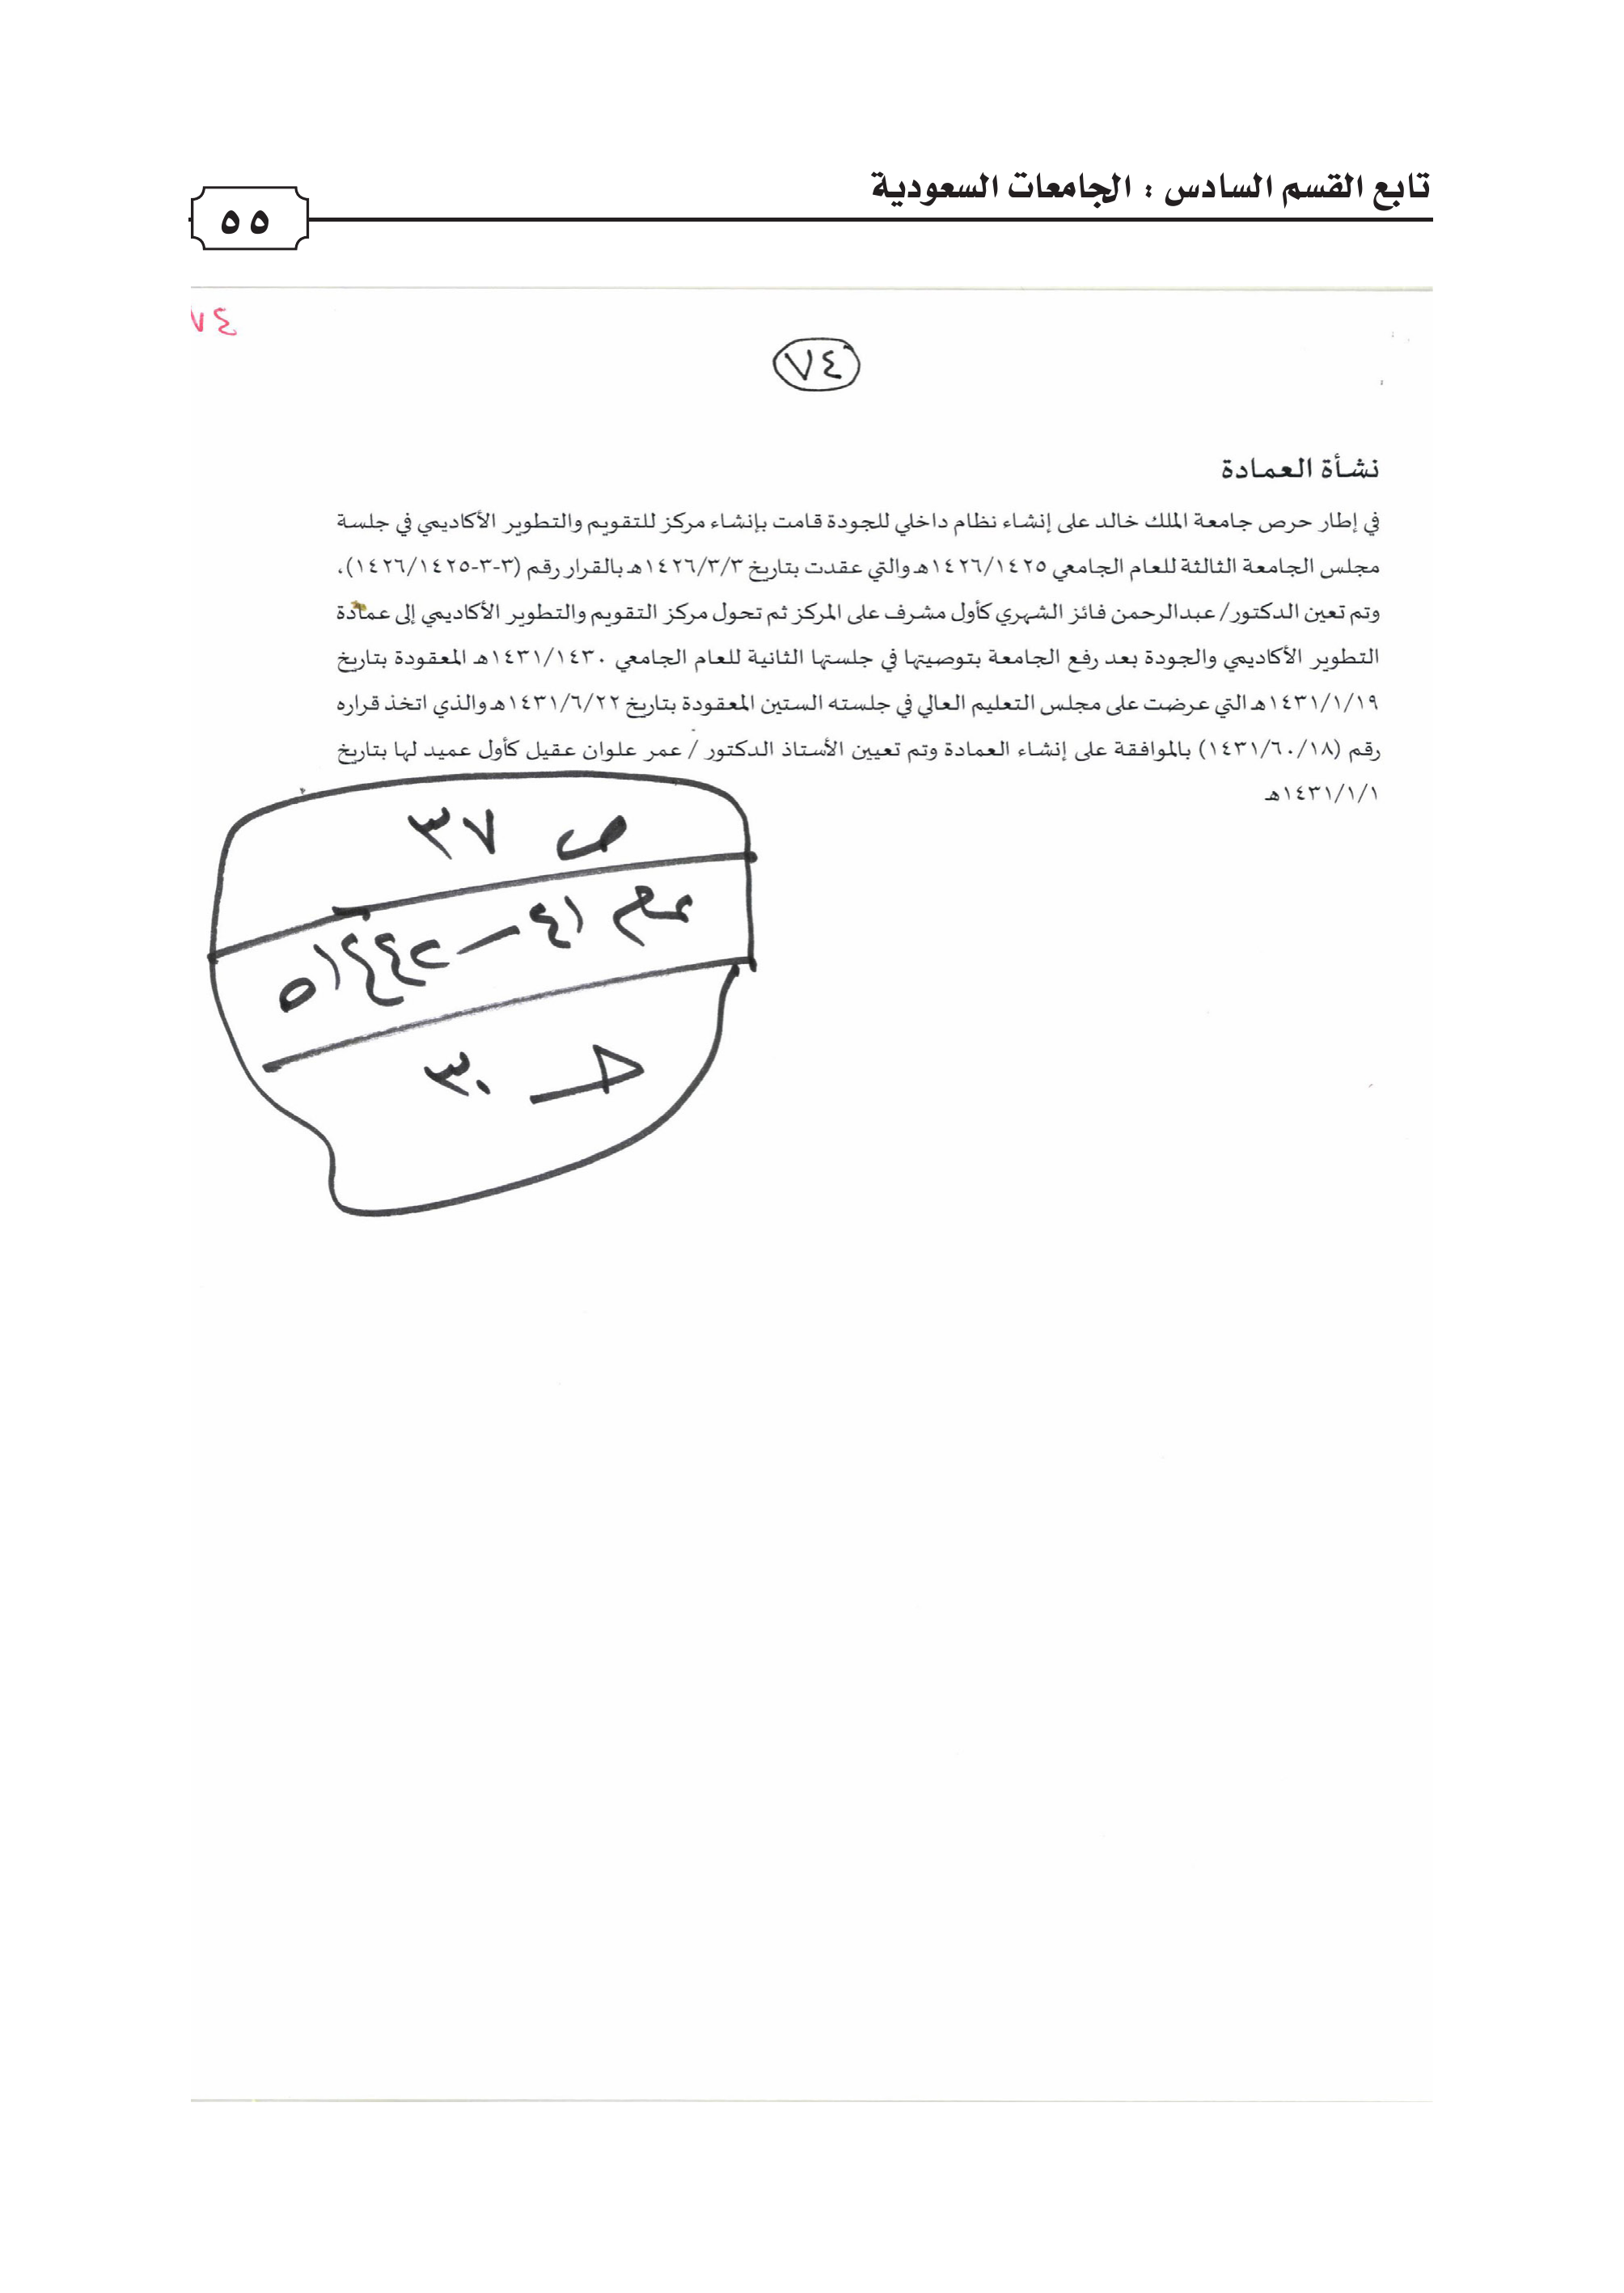 تابع القسم السادس : الجامعات السعودية
٥٥
٧٤
٧٤
نشأة العمادة
في إطار حرص جامعة الملك خالد على إنشاء نظام داخلي للجودة قامت بإنشاء مركز للتقويم والتطوير الأكاديمي في جلسة
مجلس الجامعة الثالثة للعام الجامعي ١٤٢٦/١٤٢٥هـ والتي عقدت بتاريخ ١٤٢٦/٣/٣هـ بالقرار رقم (٣-٣-١٤٢٦/١٤٢٥)،
وتم تعين الدكتور/ عبدالرحمن فائز الشهري كأول مشرف على المركز ثم تحول مركز التقويم والتطوير الأكاديمي إلى عمادة
التطوير الأكاديمي والجودة بعد رفع الجامعة بتوصيتها في جلستها الثانية للعام الجامعي ١٤٣١/١٤٣٠هـ المعقودة بتاريخ
١٤٣١/١/١٩هـ التي عرضت على مجلس التعليم العالي في جلسته الستين المعقودة بتاريخ ١٤٣١/٦/٢٢هـ والذي اتخذ قراره
رقم (١٤٣١/٦٠/١٨) بالموافقة على إنشاء العمادة وتم تعيين الأستاذ الدكتور / عمر علوان عقيل كأول عميد لها بتاريخ
١٤٣١/١/١هـ
ص ٣٧
٣٠